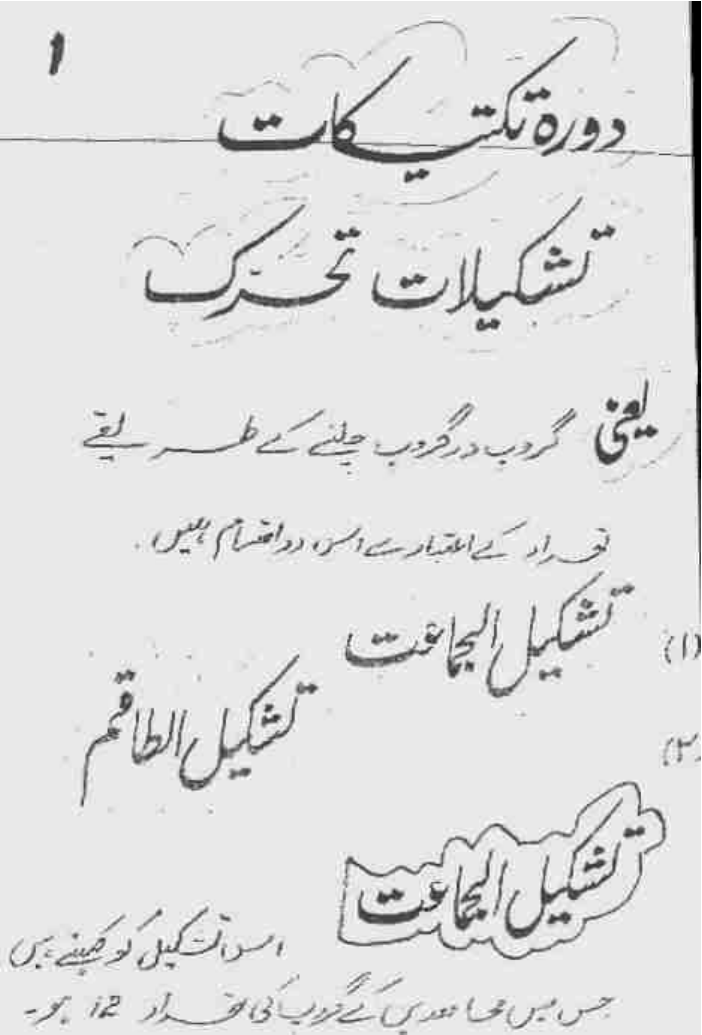 1
دورۃ تکتیکات
تشکیلات تحرک
یعنی گروپ در گروپ چلنے کے طریقے
تعداد کے اعتبار سے اس دو اقسام ہیں۔
(۱) تشکیل الجماعت
(۲) تشکیل الطاقم
تشکیل الجماعت
اس تشکیل کو کہتے ہیں
جس میں مجاھدین کے گروپ کی تعداد 12 ہو۔